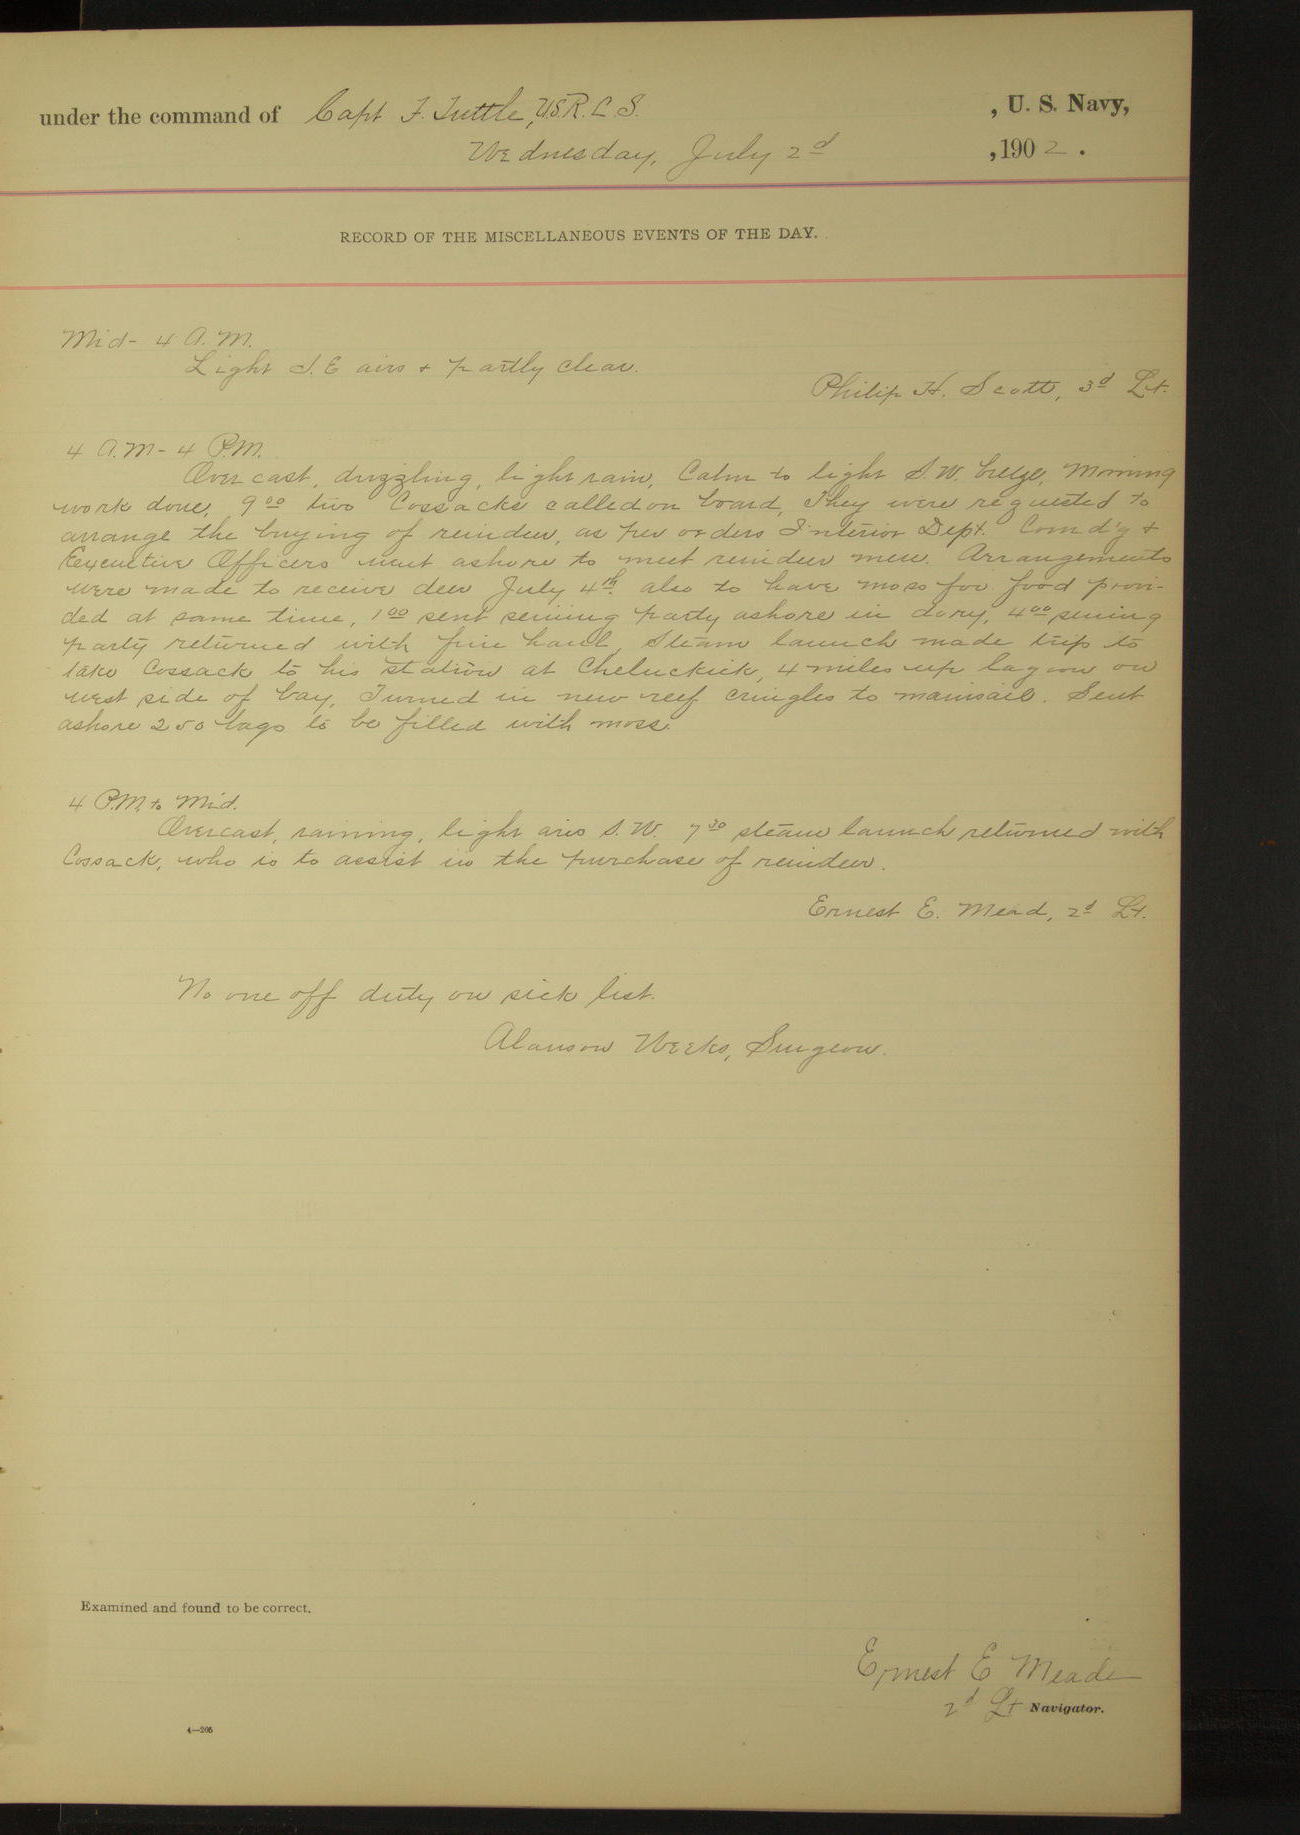 under the command of Capt F. Tuttle, U.S.R.C.S. , U. S. Navy,
Wednesday, July 2d , 1902.
RECORD OF THE MISCELLANEOUS EVENTS OF THE DAY.
Mid- 4 A.M.
Light S.E airs + partly clear.
Philip H. Scott, 3d Lt.
4 A.M- 4 P.M.
Overcast, drizzling, light rain, Calm to light S.W. breeze, Morning
work done, 9 00 two Cossacks called on board, They were requested to
arrange the buying of reindeer, as per orders Interior Dept. Comd'g +
Executive Officers went ashore to meet reindeer men. Arrangements
were made to receive deer July 4th also to have moss for food provi-
ded at same time, 1 00 sent seining party ashore in dory, 4 00 seining
party returned with fine haul, Steam launch made trip to
take Cossack to his station at Cheluckick, 4 miles up lagoon on
west side of bay, Turned in new reef cringles to mainsail. Sent
ashore 250 bags to be filled with moss.
4 P.M. to Mid.
Overcast, raining, light airs S.W. 7 30 steam launch returned with
Cossack, who is to assist in the purchase of reindeer.
Ernest E. Mead, 2d Lt.
No one off duty on sick list.
Alanson Weeks, Surgeon.
Examined and found to be correct.
Ernest E Meade
2d Lt Navigator.
4—205